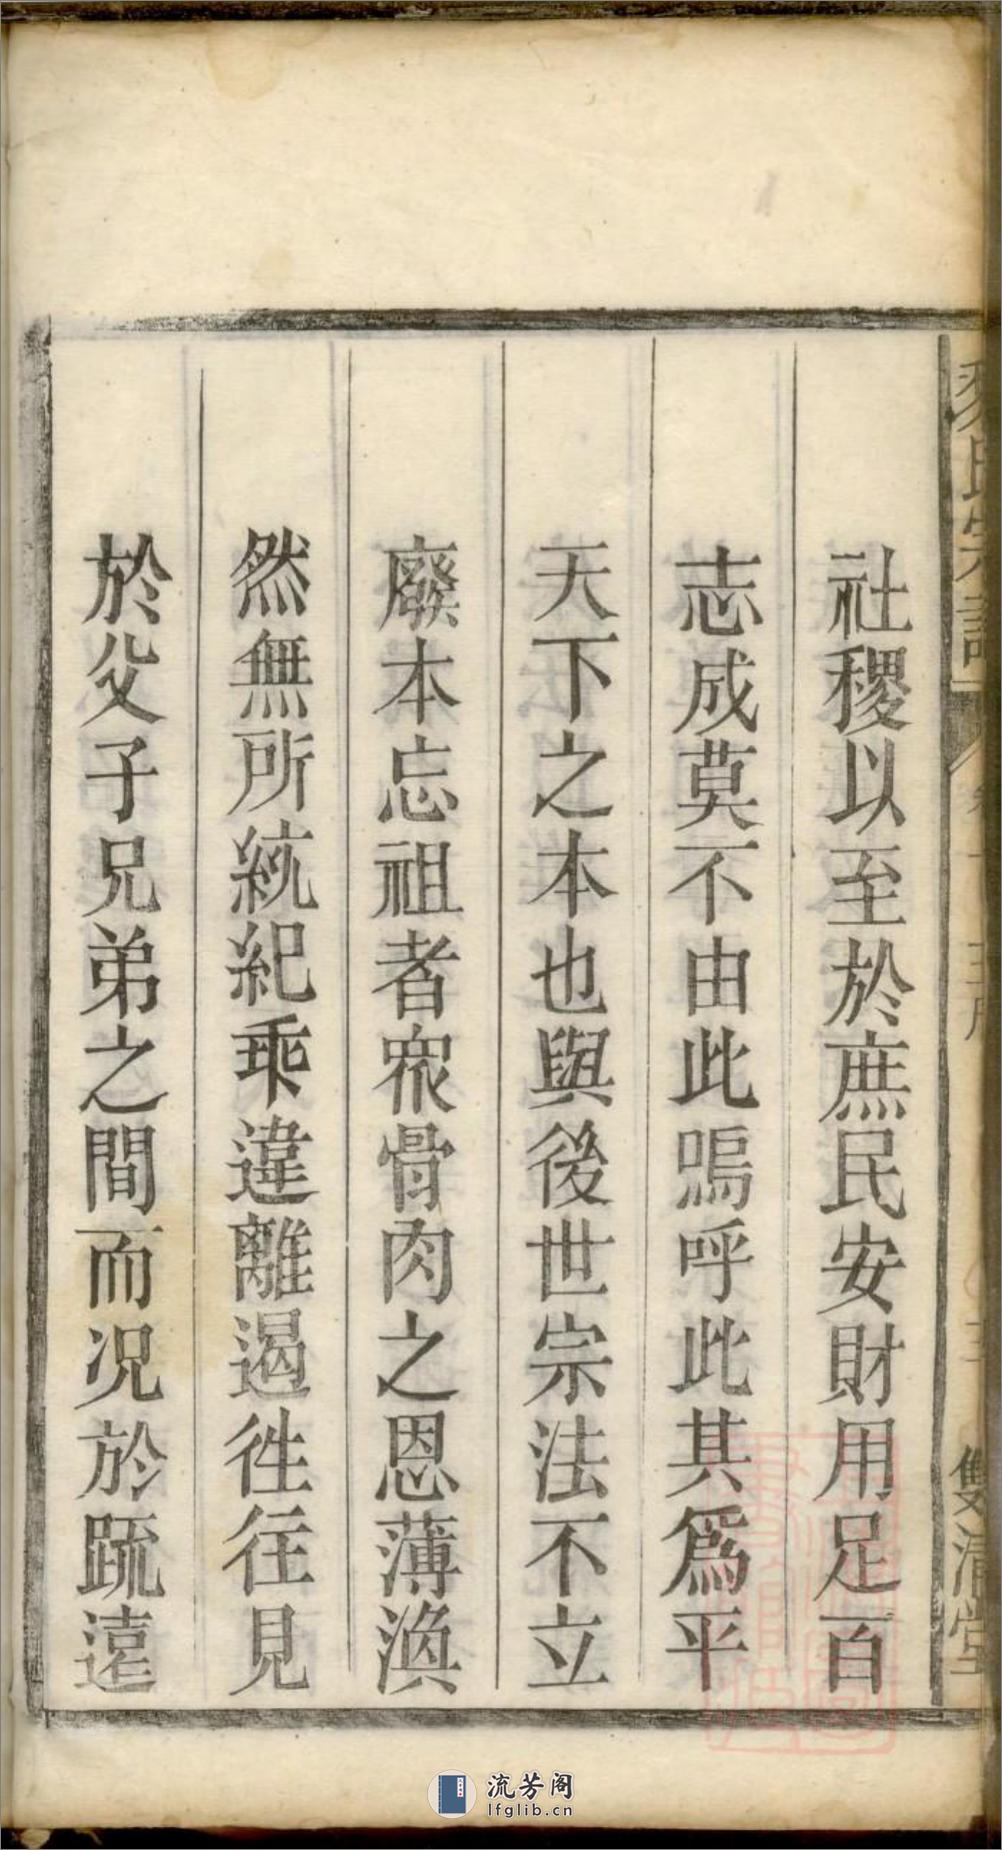 社稷以至於庶民安財用足百
志成莫不由此嗚呼此其爲平
天下之本也與後世宗法不立
廢本忘祖者眾骨肉之恩薄渙
然無所統紀乖違離遏徃往見
於父子兄弟之間而况於疏遠
氏宗譜
雙清堂
流芳阁
lfglib.cn